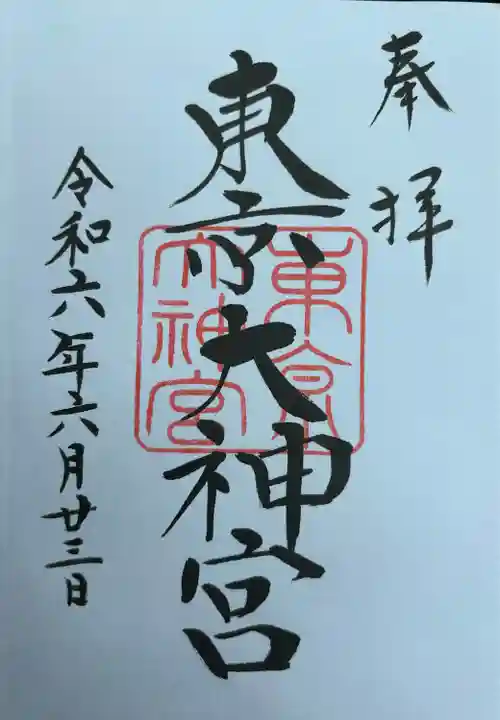 奉拝
東京大神宮
東京
大神宮
令和六年六月廿三日